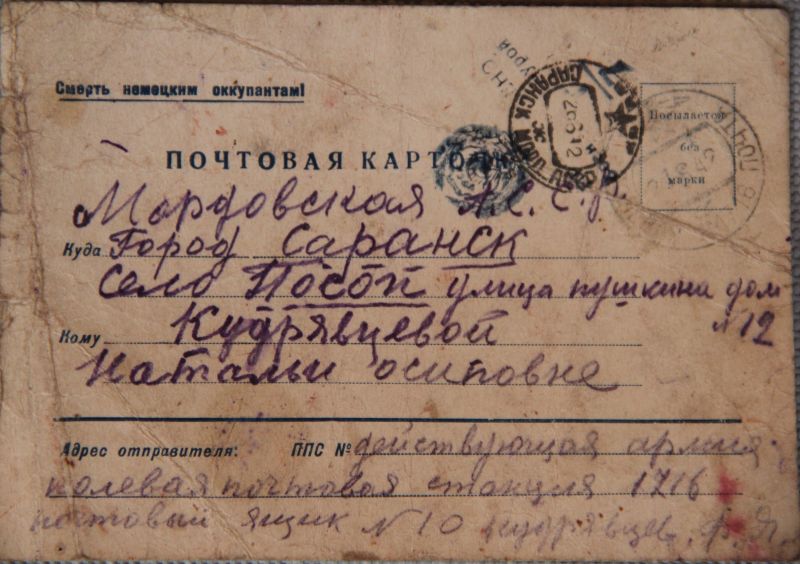 Смерть немецким оккупантам!
САРАНСК
26 6 42
Посылается
без
марки
ПОЧТОВАЯ КАРТО
Мордовская А.С.С.Р.
Куда Город Саранск
село Посоп улица пушкина дом
№12
Кому Кудрявцевой
Натальи осиповне
Адрес отправителя: ППС № действующая армия
полевая почтовая станция 1716
почтовый ящик N 10